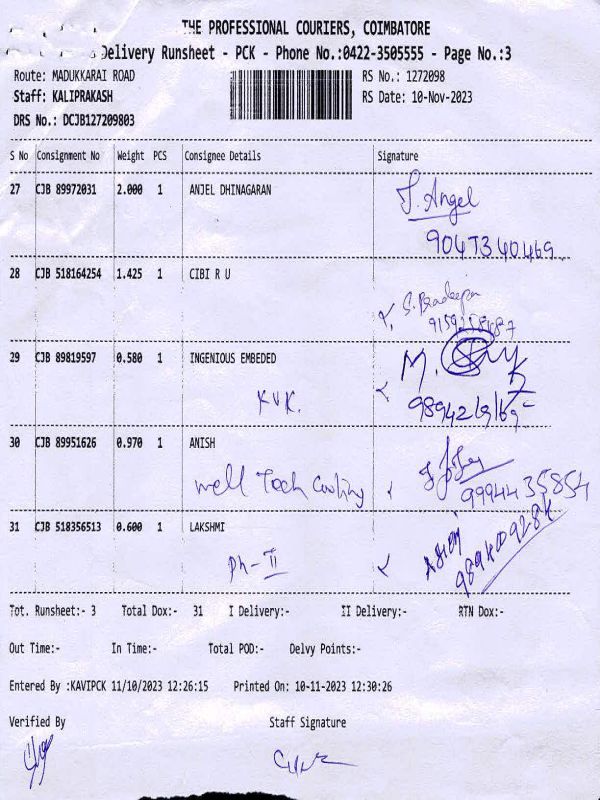 THE PROFESSIONAL COURIERS, COIMBATORE
Delivery Runsheet - PCK - Phone No.:0422-3505555 - Page No.:3
Route: MADUKKARAI ROAD RS No.: 1272098
Staff: KALIPRAKASH RS Date: 10-Nov-2023
DRS No.: DCJB127209803
S No Consignment No Weight PCS Consignee Details Signature
27 CJB 89972031 2.000 1 ANJEL DHINAGARAN J. Angel
9047340469
28 CJB 518164254 1.425 1 CIBI R U
29 CJB 89819597 0.580 1 INGENIOUS EMBEDED M.
KVK.
30 CJB 89951626 0.970 1 ANISH
Well Tech Cooling 9994435854
31 CJB 518356513 0.600 1 LAKSHMI
Ph-II
Tot. Runsheet:- 3 Total Dox:- 31 I Delivery:- II Delivery:- RTN Dox:-
Out Time:- In Time:- Total POD:- Delvy Points:-
Entered By :KAVIPCK 11/10/2023 12:26:15 Printed On: 10-11-2023 12:30:26
Verified By Staff Signature